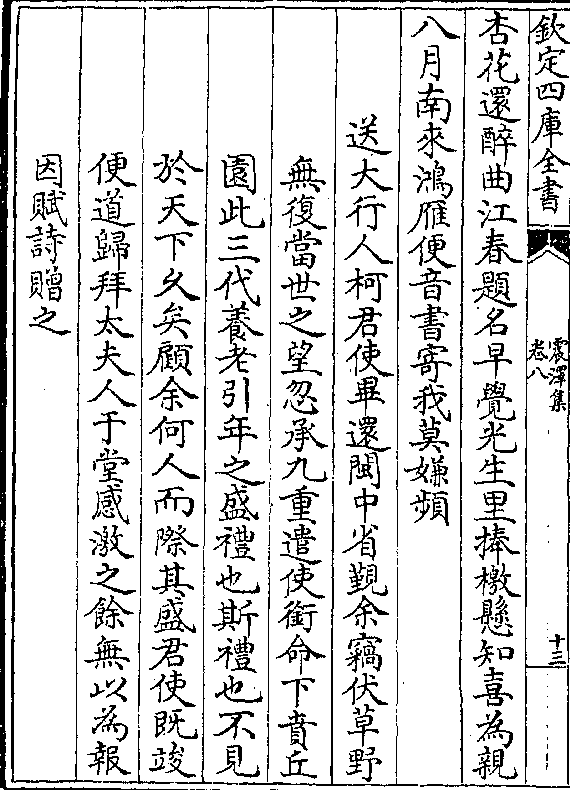 欽定四庫全書
震澤集
卷八
十三
杏花還醉曲江春題名早覺光生里捧檄懸知喜為親
八月南來鴻雁便音書寄我莫嫌頻
送大行人柯君使畢還閩中省覲余竊伏草野
無復當世之望忽承九重遣使銜命下賁丘
園此三代養老引年之盛禮也斯禮也不見
於天下久矣顧余何人而際其盛君使既竣
便道歸拜太夫人于堂感激之餘無以為報
因賦詩贈之